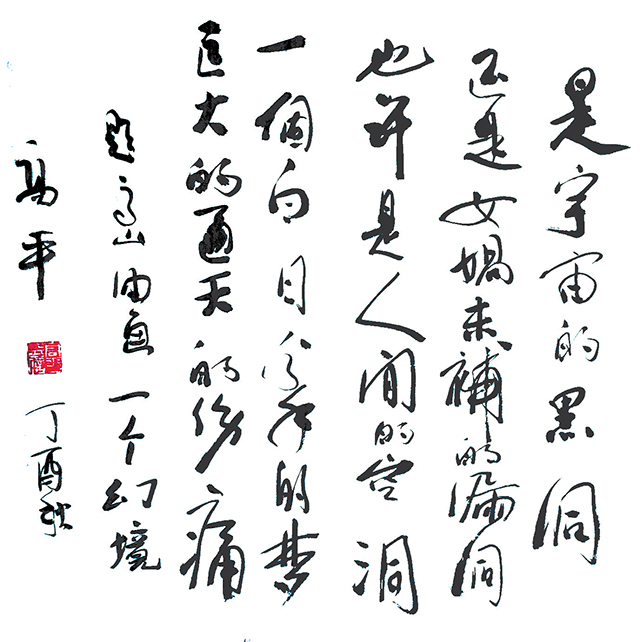 是宇宙的黑洞
还是女媧未補的漏洞
也许是人间的空洞
一個白日的梦
巨大的通天的伤痛
题高山油画一个幻境
高平 丁酉秋